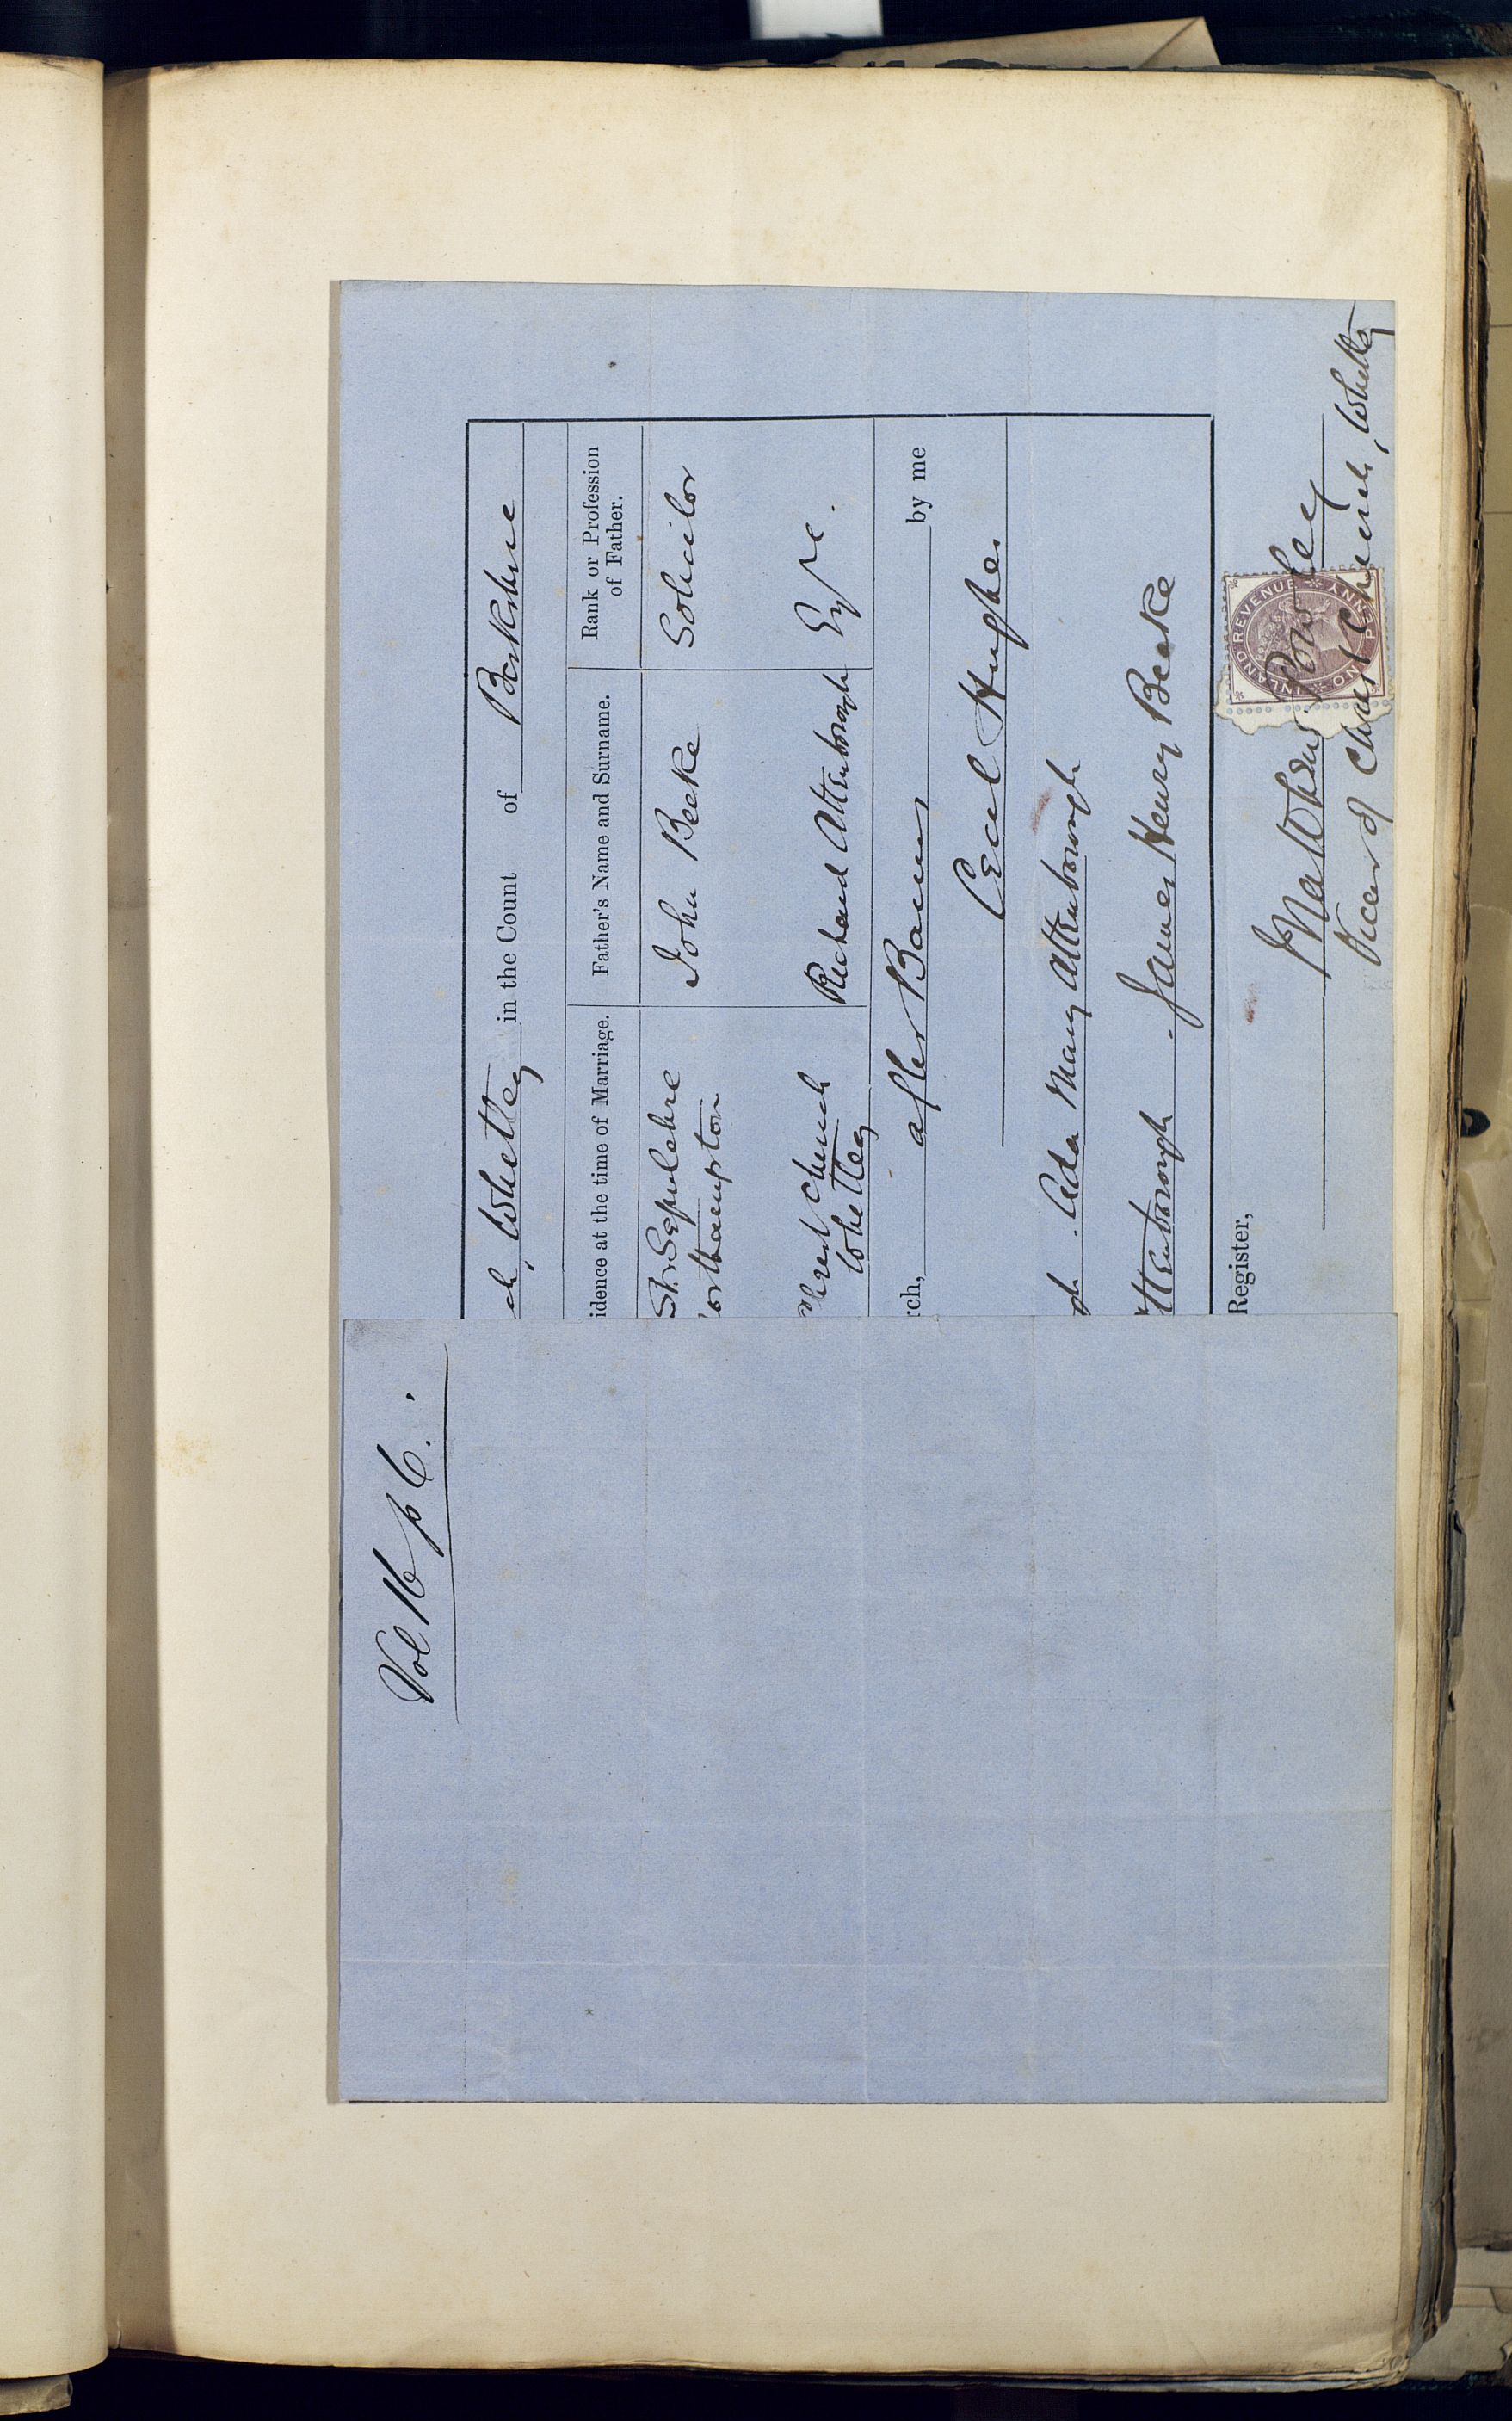 Vol 16 p 6.
ch, Whitley in the Count of Berkshire
idence at the time of Marriage. Father's Name and Surname. Rank or Profession of Father.
St. Sepulchre John Becke Solicitor
orthampton
Christ Church Richard Attenborough Esqre.
Whitley
rch, after Banns by me
Cecil Hughes
gh. Ada Mary Attenborough
ttenborough. James Henry Becke
Register,
Powley
Vicar of Christ Church, Whitley
INLAND REVENUE
ONE PENNY